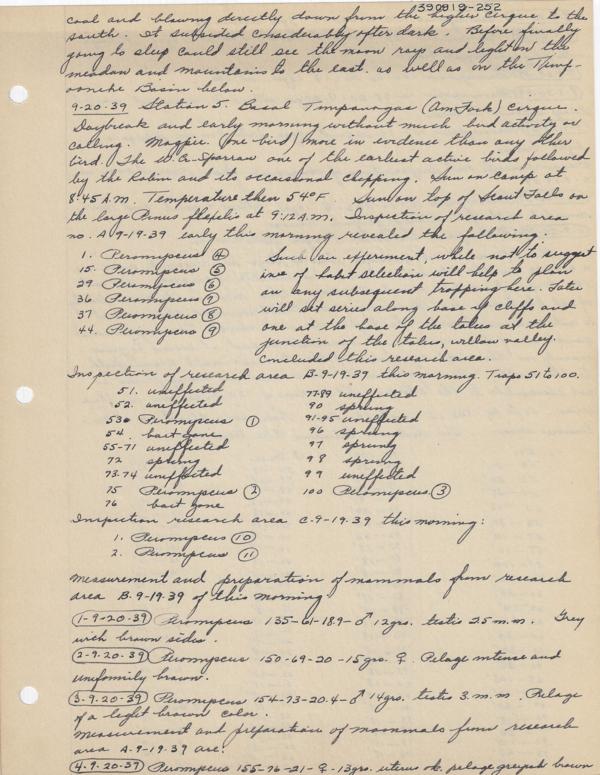 390919-252
cool and blowing directly down from the higher cirque to the
south. It subsided considerably after dark. Before finally
going to sleep could still see the moon rays and light on the
meadow and mountains to the east. as well as on the Timp-
ooneke Basin below.
9-20-39 Station 5. Basal Timpanogas (Am Fork) cirque.
Daybreak and early morning without much bird activity or
calling. Magpie (one bird) more in evidence than any other
bird. The W.C. Sparrow one of the earliest active birds followed
by the Robin and its occasional chipping. Sun on camp at
8:45 A.M. Temperature then 54°F. Sun on top of Scout Falls on
the large Pinus flexilis at 9:12 A.M. Inspection of research area
no. A 9-19-39 early this morning revealed the following.
1. Peromyscus ④
15. Peromyscus ⑤
29 Peromyscus ⑥
36 Peromyscus ⑦
37 Peromyscus ⑧
44. Peromyscus ⑨
Such an experiment, while not to suggest
ive of habt selection will help to plan
on any subsequent trapping here. Later
will set series along base of cliffs and
one at the base of the talus at the
junction of the talus, willow valley.
Concluded this research area.
Inspection of research area B-9-19-39 this morning. Traps 51 to 100.
51. uneffected
52. uneffected
53 Peromyscus ①
54. bait gone
55-71 uneffected
72 sprung
73-74 uneffected
75 Peromyscus ②
76 bait gone
77-89 uneffected
90 sprung
91-95 uneffected
96 sprung
97 sprung
98 sprung
99 uneffected
100 Peromyscus. ③
Inspection research area C-9-19-39 this morning:
1. Peromyscus ⑩
2. Peromyscus ⑪
Measurement and preparation of mammals from research
area B-9-19-39 of this morning
1-9-20-39 Peromyscus 135-61-18.9-♂ 12grs. testis 2.5 m.m. Grey
with brown sides.
2-9-20-39 Peromyscus 150-69-20-15grs. ♀. Pelage intense and
uniformily brown.
3-9-20-39 Peromyscus 154-73-20.4-♂ 14grs. testis 3.m.m. Pelage
of a light brown color.
Measurement and preparation of mammals from research
area A-9-19-39 are:
4-9-20-39 Peromyscus 155-76-21-♀-13grs. uterus ok. pelage greyish brown